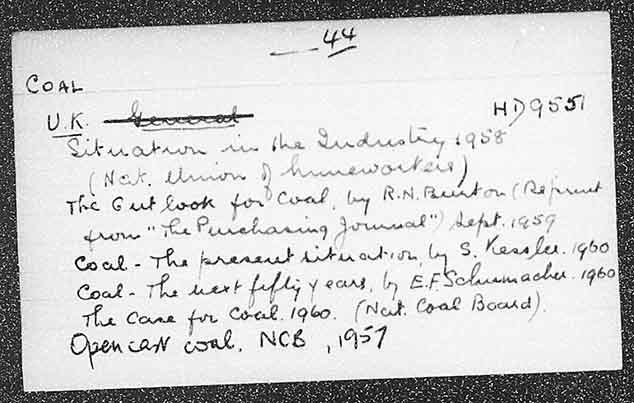 44
COAL
U.K. General
HD9551
Situation in the Industry 1958
(Nat. Union of Mineworkers)
The Outlook for Coal, by R.N. Burton (Reprint
from "The Purchasing Journal") Sept. 1959
Coal - The present situation, by S. Kessler. 1960
Coal - The next fifty years, by E.F. Schumacher. 1960
The Case for Coal. 1960. (Nat. Coal Board).
Opencast coal. NCB, 1957